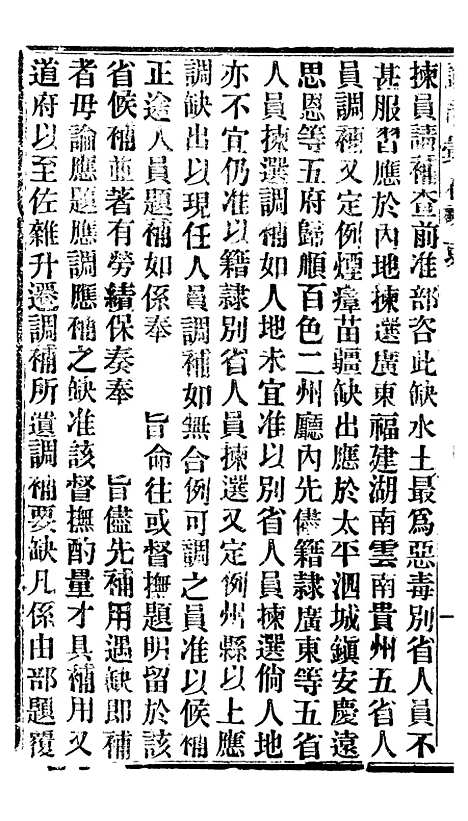 揀員請補查前准部咨此缺水土最爲惡毒別省人員不
甚服習應於內地揀選廣東福建湖南雲南貴州五省人
員調補又定例煙瘴苗疆缺出應於太平泗城鎮安慶遠
思恩等五府歸順百色二州廳內先儘籍隸廣東等五省
人員揀選調補如人地未宜准以別省人員揀選倘人地
亦不宜仍准以籍隸別省人員揀選又定例州縣以上應
調缺出以現任人員調補如無合例可調之員准以候補
正途人員題補如係奉　旨命往或督撫題明留於該
省候補並著有勞績保奏奉　旨儘先補用遇缺卽補
者毋論應題應調應補之缺准該督撫酌量才具補用又
道府以至佐雜升遷調補所遺調補要缺凡係由部題覆